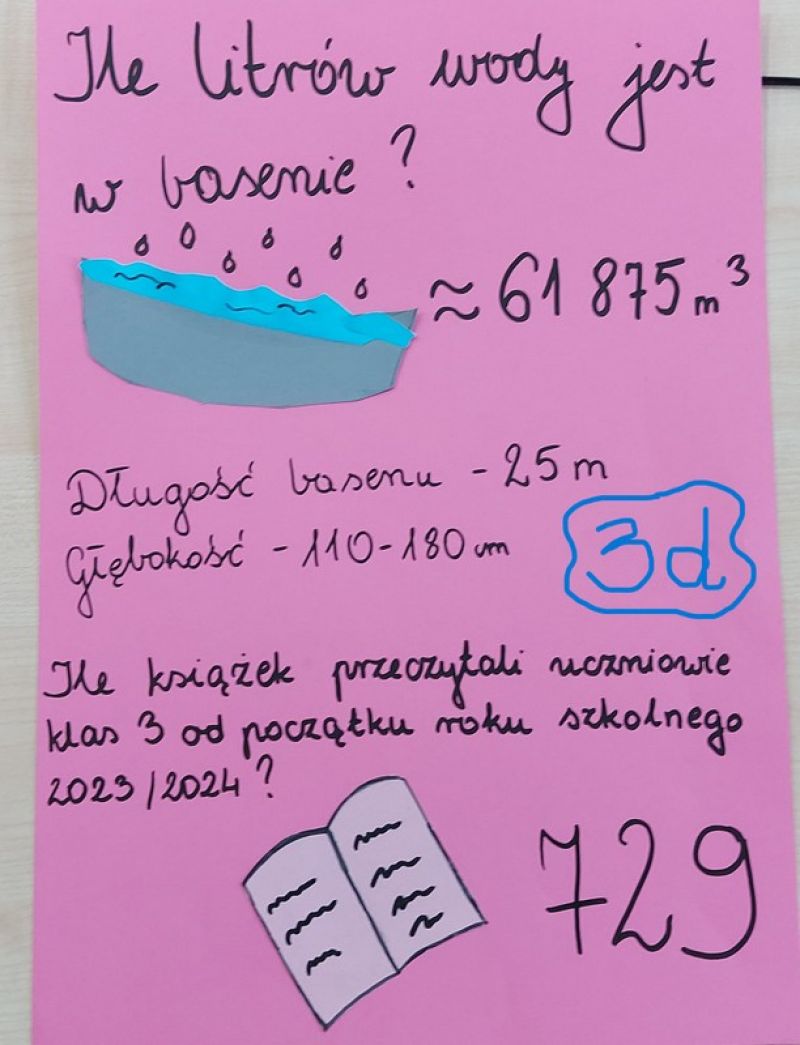 Ile litrów wody jest
w basenie?
≈ 61 875 m³
Długość basenu - 25 m
Głębokość - 110-180 cm
3d
Ile książek przeczytali uczniowie
klas 3 od początku roku szkolnego
2023/2024?
729